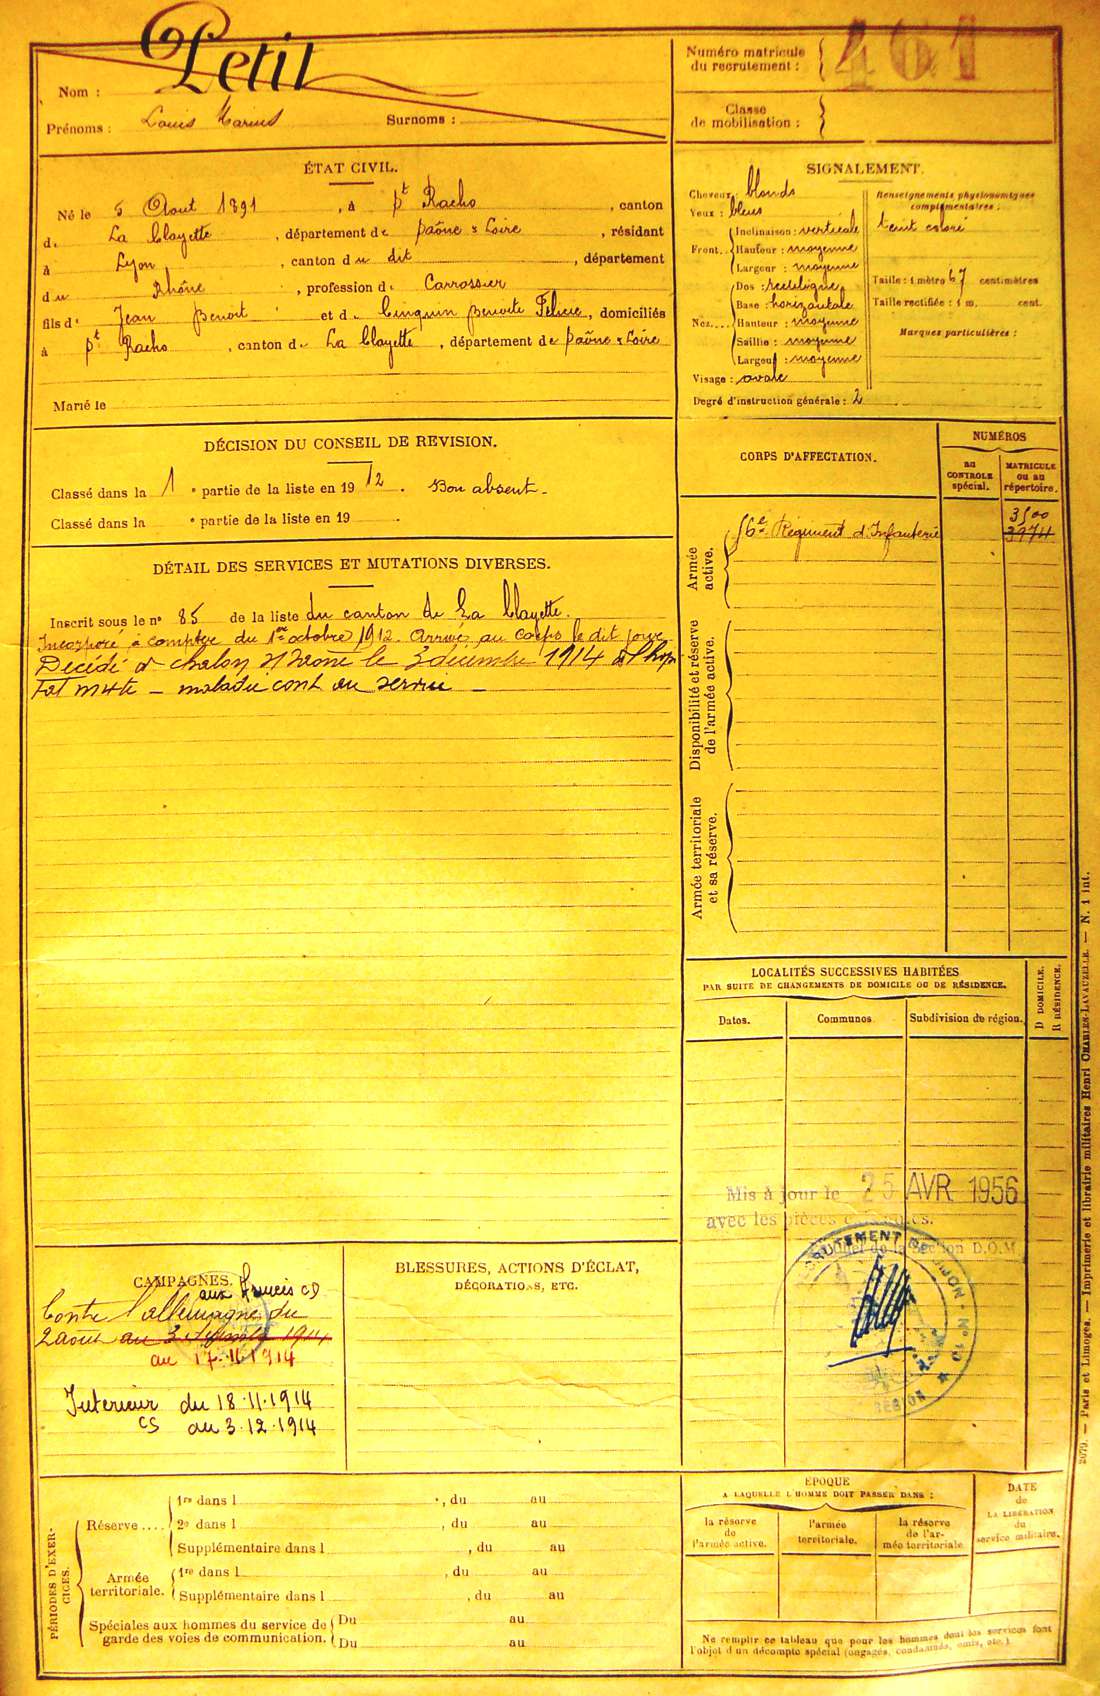 Petit
Nom :
Prénoms : Louis Marius Surnoms :
Numéro matricule
du recrutement :
461
Classe
de mobilisation :
ÉTAT CIVIL.
Né le 5 Aout 1891, à pt Racho, canton
de La Clayette, département de Saône & Loire, résidant
à Lyon, canton du dit, département
du Rhône, profession de Carrossier
fils de Jean Benoit et de Cinquin Benoite Felicie, domiciliés
à pt Racho, canton de La Clayette, département de Saône & Loire
Marié le
SIGNALEMENT.
Cheveux : blonds
Yeux : bleus
Front. Inclinaison : verticale
Hauteur : moyenne
Largeur : moyenne
Nez. Dos : rectiligne
Base : horizontale
Hauteur : moyenne
Saillie : moyenne
Largeur : moyenne
Visage : ovale
Degré d'instruction générale : 2
Renseignements physionomiques
complémentaires :
teint coloré
Taille : 1 mètre 67 centimètres
Taille rectifiée : 1 m. cent.
Marques particulières :
DÉCISION DU CONSEIL DE REVISION.
Classé dans la 1 e partie de la liste en 1912. Bon absent -
Classé dans la e partie de la liste en 19 .
DÉTAIL DES SERVICES ET MUTATIONS DIVERSES.
Inscrit sous le no 85 de la liste du canton de La Clayette.
Incorporé à compter du 1er octobre 1912. Arrivé au corps le dit jour.
Décédé à Chalon s/ Saone le 3 décembre 1914 à l'hopi
tal mixte - maladie cont au service -
CORPS D'AFFECTATION.
NUMÉROS
au
CONTROLE
spécial.
MATRICULE
ou au
répertoire.
Armée
active.
56e Régiment d'Infanterie
3500
3974
Disponibilité et réserve
de l'armée active.
Armée territoriale
et sa réserve.
LOCALITÉS SUCCESSIVES HABITÉES
PAR SUITE DE CHANGEMENTS DE DOMICILE OU DE RÉSIDENCE.
D DOMICILE.
R RÉSIDENCE.
Dates.
Communes
Subdivision de région.
Mis à jour le 25 AVR 1956
avec les pièces
de la Section D.O.M.
RECRUTEMENT DE DIJON - No 10
RÉGION
CAMPAGNES.
aux Armées CD
Contre l'allemagne du
2 aout au 3 décembre 1914
au 17.11.1914
Interieur du 18.11.1914
CS au 3.12.1914
BLESSURES, ACTIONS D'ÉCLAT,
DÉCORATIONS, ETC.
PÉRIODES D'EXER-
CICES.
Réserve .... 1re dans l , du au
2e dans l , du au
Supplémentaire dans l , du au
Armée
territoriale. 1re dans l , du au
Supplémentaire dans l , du au
Spéciales aux hommes du service de
garde des voies de communication. Du au
Du au
EPOQUE
A LAQUELLE L'HOMME DOIT PASSER DANS :
la réserve
de
l'armée active.
l'armée
territoriale.
la réserve
de l'ar-
mée territoriale
DATE
de
LA LIBÉRATION
du
service militaire.
Ne remplir ce tableau que pour les hommes dont les services font
l'objet d'un décompte spécial (engagés, condamnés, omis, etc.)
2079. — Paris et Limoges. — Imprimerie et librairie militaires Henri CHARLES-LAVAUZELLE. — N. 1 int.